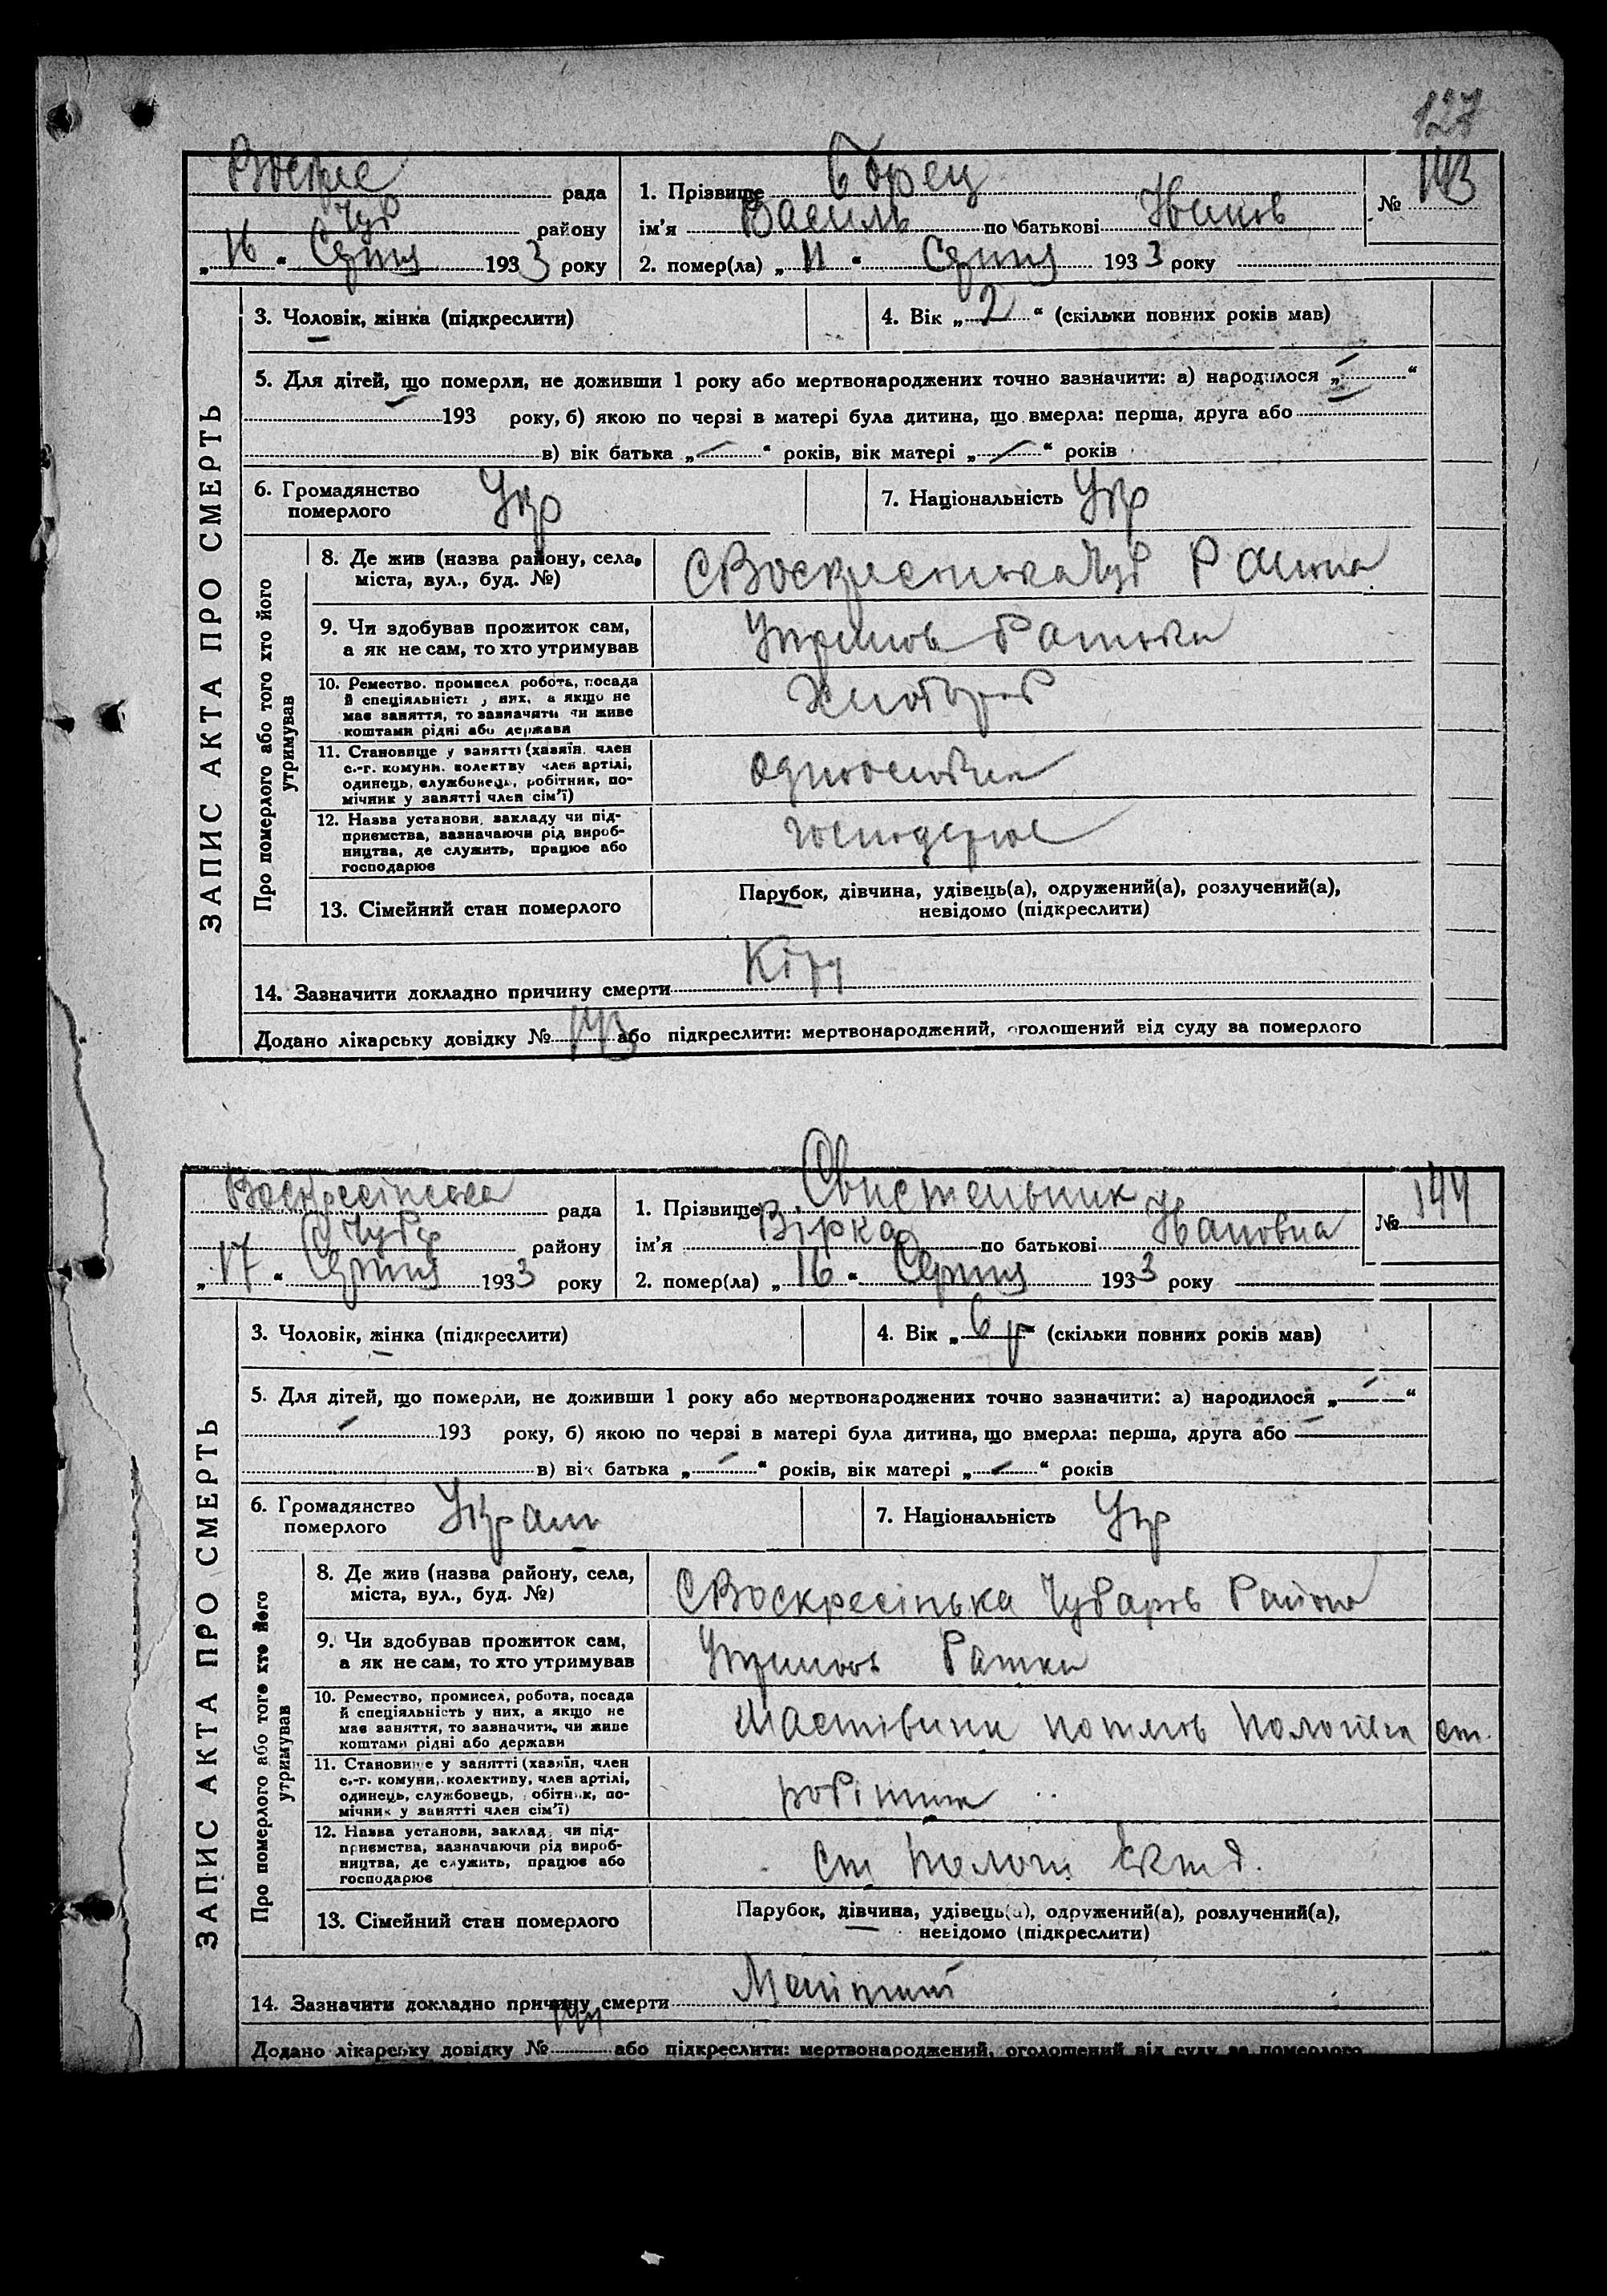 127
Воскре рада
Чуб району
„16“ Серпня 1933 року
1. Прізвище Борец
ім'я Василь по батькові Іванов
№ 143
2. помер(ла) „11“ Серпня 1933 року
ЗАПИС АКТА ПРО СМЕРТЬ
3. Чоловік, жінка (підкреслити)
4. Вік „2“ (скільки повних років мав)
5. Для дітей, що померли, не доживши 1 року або мертвонароджених точно зазначити: а) народилося „-“
193 року, б) якою по черзі в матері була дитина, що вмерла: перша, друга або
в) вік батька „-“ років, вік матері „-“ років
6. Громадянство померлого Укр
7. Національність Укр
Про померлого або того хто його утримував
8. Де жив (назва району, села,
міста, вул., буд. №)
С Воскресенька Чуб Району
9. Чи здобував прожиток сам,
а як не сам, то хто утримував
Утримов Батько
10. Ремество, промисел, робота, посада
й спеціяльність у них, а якщо не
має заняття, то зазначити чи живе
коштами рідні або держави
Хлібороб
11. Становище у занятті (хазяїн, член
с.-г. комуни, колективу, член артілі,
одинець, службовець, робітник, по-
мічник у занятті член сім'ї)
одноосібник
12. Назва установи, закладу чи під-
приємства, зазначаючи рід вироб-
ництва, де служить, працює або
господарює
господарює
13. Сімейний стан померлого
Парубок, дівчина, удівець(а), одружений(а), розлучений(а),
невідомо (підкреслити)
14. Зазначити докладно причину смерти Кір
Додано лікарську довідку № 143 або підкреслити: мертвонароджений, оголошений від суду за померлого
Воскресінська рада
Чубар району
„17“ Серпня 1933 року
1. Прізвище Свистельник
ім'я Вірка по батькові Івановна
№ 144
2. помер(ла) „16“ Серпня 1933 року
ЗАПИС АКТА ПРО СМЕРТЬ
3. Чоловік, жінка (підкреслити)
4. Вік „6 р“ (скільки повних років мав)
5. Для дітей, що померли, не доживши 1 року або мертвонароджених точно зазначити: а) народилося „-“
193 року, б) якою по черзі в матері була дитина, що вмерла: перша, друга або
в) вік батька „-“ років, вік матері „-“ років
6. Громадянство померлого Украін
7. Національність Укр
Про померлого або того хто його утримував
8. Де жив (назва району, села,
міста, вул., буд. №)
С Воскресінька Чубаров Району
9. Чи здобував прожиток сам,
а як не сам, то хто утримував
Утримов Батки
10. Ремество, промисел, робота, посада
й спеціяльність у них, а якщо не
має заняття, то зазначити, чи живе
коштами рідні або держави
потягов Пологівск ст.
11. Становище у занятті (хазяїн, член
с.-г. комуни, колективу, член артілі,
одинець, службовець, робітник, по-
мічник у занятті член сім'ї)
робітник
12. Назва установи, закладу чи під-
приємства, зазначаючи рід вироб-
ництва, де служить, працює або
господарює
ст Пологи
13. Сімейний стан померлого
Парубок, дівчина, удівець(а), одружений(а), розлучений(а),
невідомо (підкреслити)
14. Зазначити докладно причину смерти Менінгит
Додано лікарську довідку № 144 або підкреслити: мертвонароджений, оголошений від суду за померлого